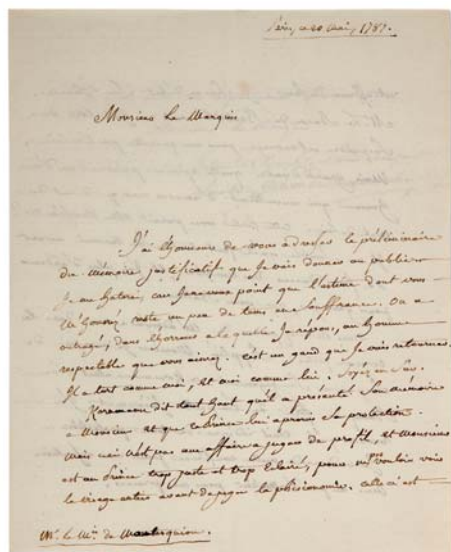 Paris, ce 20 mai, 1787.
Monsieur Le Marquis
J'ai L'honneur de vous adresser le préliminaire
du mémoire justificatif que je vais donner au public.
Je me hatere, car je ne veux point que l'estime dont vous
M'honorez reste un peu de tems en souffrance. On a
outragé, dans l'horreur a la quelle Je répons, un homme
respectable que vous aimez. c'est un gand que je vais retourner.
Il a tort comme moi, et moi comme lui. Soyez en Sur.
Kornmann dit tout haut qu'il a présenté Son mémoire
a Monsieur et que ce Prince lui a promis Sa protection.
Mais ceci n'est pas une affaire a juger de profil, et Monsieur
est un Prince trop juste et trop Eclairé, pour vouloir voir
le visage entier avant de juger la phisionomie. celle ci est
Mr. le Mis. de Montesquiou.